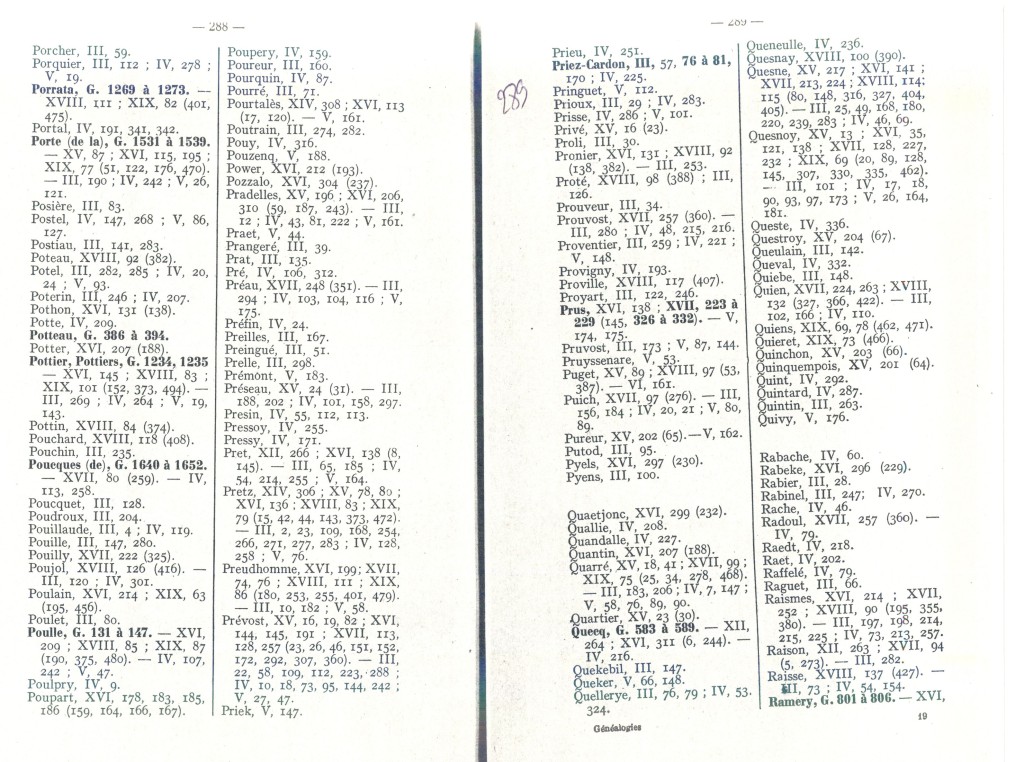 — 288 —
Porcher, III, 59.
Porquier, III, 112 ; IV, 278 ;
V, 19.
Porrata, G. 1269 à 1273. —
XVIII, 111 ; XIX, 82 (401,
475).
Portal, IV, 191, 341, 342.
Porte (de la), G. 1531 à 1539.
— XV, 87 ; XVI, 115, 195 ;
XIX, 77 (51, 122, 176, 470).
— III, 190 ; IV, 242 ; V, 26,
121.
Posière, III, 83.
Postel, IV, 147, 268 ; V, 86,
127.
Postiau, III, 141, 283.
Poteau, XVIII, 92 (382).
Potel, III, 282, 285 ; IV, 20,
24 ; V, 93.
Poterin, III, 246 ; IV, 207.
Pothon, XVI, 131 (138).
Potte, IV, 209.
Potteau, G. 386 à 394.
Potter, XVI, 207 (188).
Pottier, Pottiers, G. 1234, 1235
— XVI, 145 ; XVIII, 83 ;
XIX, 101 (152, 373, 494). —
III, 269 ; IV, 264 ; V, 19,
143.
Pottin, XVIII, 84 (374).
Pouchard, XVIII, 118 (408).
Pouchin, III, 235.
Poucques (de), G. 1640 à 1652.
— XVII, 80 (259). — IV,
113, 258.
Poucquet, III, 128.
Poudroux, III, 204.
Pouillaude, III, 4 ; IV, 119.
Pouille, III, 147, 280.
Pouilly, XVII, 222 (325).
Poujol, XVIII, 126 (416). —
III, 120 ; IV, 301.
Poulain, XVI, 214 ; XIX, 63
(195, 456).
Poulet, III, 80.
Poulle, G. 131 à 147. — XVI,
209 ; XVIII, 85 ; XIX, 87
(190, 375, 480). — IV, 107,
242 ; V, 47.
Poulpry, IV, 9.
Poupart, XVI, 178, 183, 185,
186 (159, 164, 166, 167).
Poupery, IV, 159.
Poureur, III, 160.
Pourquin, IV, 87.
Pourré, III, 71.
Pourtalès, XIV, 308 ; XVI, 113
(17, 120). — V, 161.
Poutrain, III, 274, 282.
Pouy, IV, 316.
Pouzenq, V, 188.
Power, XVI, 212 (193).
Pozzalo, XVI, 304 (237).
Pradelles, XV, 196 ; XVI, 206,
310 (59, 187, 243). — III,
12 ; IV, 43, 81, 222 ; V, 161.
Praet, V, 44.
Prangeré, III, 39.
Prat, III, 135.
Pré, IV, 106, 312.
Préau, XVII, 248 (351). — III,
294 ; IV, 103, 104, 116 ; V,
175.
Préfin, IV, 24.
Preilles, III, 167.
Preingué, III, 51.
Prelle, III, 298.
Prémont, V, 183.
Préseau, XV, 24 (31). — III,
188, 202 ; IV, 101, 158, 297.
Presin, IV, 55, 112, 113.
Pressoy, IV, 255.
Pressy, IV, 171.
Pret, XII, 266 ; XVI, 138 (8,
145). — III, 65, 185 ; IV,
54, 214, 255 ; V, 164.
Pretz, XIV, 306 ; XV, 78, 80 ;
XVI, 136 ; XVIII, 83 ; XIX,
79 (15, 42, 44, 143, 373, 472).
— III, 2, 23, 109, 168, 254,
266, 271, 277, 283 ; IV, 128,
258 ; V, 76.
Preudhomme, XVI, 199 ; XVII,
74, 76 ; XVIII, 111 ; XIX,
86 (180, 253, 255, 401, 479).
— III, 10, 182 ; V, 58.
Prévost, XV, 16, 19, 82 ; XVI,
144, 145, 191 ; XVII, 113,
128, 257 (23, 26, 46, 151, 152,
172, 292, 307, 360). — III,
22, 58, 109, 112, 223, 288 ;
IV, 10, 18, 73, 95, 144, 242 ;
V, 27, 47.
Priek, V, 147.
— 289 —
289
Prieu, IV, 251.
Priez-Cardon, III, 57, 76 à 81,
170 ; IV, 225.
Pringuet, V, 112.
Prioux, III, 29 ; IV, 283.
Prisse, IV, 286 ; V, 101.
Privé, XV, 16 (23).
Proli, III, 30.
Pronier, XVI, 131 ; XVIII, 92
(138, 382). — III, 253.
Proté, XVIII, 98 (388) ; III,
126.
Prouveur, III, 34.
Prouvost, XVII, 257 (360). —
III, 280 ; IV, 48, 215, 216.
Proventier, III, 259 ; IV, 221 ;
V, 148.
Provigny, IV, 193.
Proville, XVIII, 117 (407).
Proyart, III, 122, 246.
Prus, XVI, 138 ; XVII, 223 à
229 (145, 326 à 332). — V,
174, 175.
Pruvost, III, 173 ; V, 87, 144.
Pruyssenare, V, 53.
Puget, XV, 89 ; XVIII, 97 (53,
387). — VI, 161.
Puich, XVII, 97 (276). — III,
156, 184 ; IV, 20, 21 ; V, 80,
89.
Pureur, XV, 202 (65).—V, 162.
Putod, III, 95.
Pyels, XVI, 297 (230).
Pyens, III, 100.
Quaetjonc, XVI, 299 (232).
Quallie, IV, 208.
Quandalle, IV, 227.
Quantin, XVI, 207 (188).
Quarré, XV, 18, 41 ; XVII, 99 ;
XIX, 75 (25, 34, 278, 468).
— III, 183, 206 ; IV, 7, 147 ;
V, 58, 76, 89, 90.
Quartier, XV, 23 (30).
Quecq, G. 583 à 589. — XII,
264 ; XVI, 311 (6, 244). —
IV, 216.
Quekebil, III, 147.
Queker, V, 66, 148.
Quellerye, III, 76, 79 ; IV, 53.
324.
Queneulle, IV, 236.
Quesnay, XVIII, 100 (390).
Quesne, XV, 217 ; XVI, 141 ;
XVII, 213, 224 ; XVIII, 114;
115 (80, 148, 316, 327, 404,
405). — III, 25, 49, 168, 180,
220, 239, 283 ; IV, 46, 69.
Quesnoy, XV, 13 ; XVI, 35,
121, 138 ; XVII, 128, 227,
232 ; XIX, 69 (20, 89, 128,
145, 307, 330, 335, 462).
— III, 101 ; IV, 17, 18,
90, 93, 97, 173 ; V, 26, 164,
181.
Queste, IV, 336.
Questroy, XV, 204 (67).
Queulain, III, 142.
Queval, IV, 332.
Quiebe, III, 148.
Quien, XVII, 224, 263 ; XVIII,
132 (327, 366, 422). — III,
102, 166 ; IV, 110.
Quiens, XIX, 69, 78 (462, 471).
Quieret, XIX, 73 (466).
Quinchon, XV, 203 (66).
Quinquempois, XV, 201 (64).
Quint, IV, 292.
Quintard, IV, 287.
Quintin, III, 263.
Quivy, V, 176.
Rabache, IV, 60.
Rabeke, XVI, 296 (229).
Rabier, III, 28.
Rabinel, III, 247; IV, 270.
Rache, IV, 46.
Radoul, XVII, 257 (360). —
IV, 79.
Raedt, IV, 218.
Raet, IV, 202.
Raffelé, IV, 79.
Raguet, III, 66.
Raismes, XVI, 214 ; XVII,
252 ; XVIII, 90 (195, 355,
380). — III, 197, 198, 214,
215, 225 ; IV, 73, 213, 257.
Raison, XII, 263 ; XVII, 94
(5, 273). — III, 282.
Raisse, XVIII, 137 (427). —
III, 73 ; IV, 54, 154.
Ramery, G. 801 à 806. — XVI,
Généalogies
19